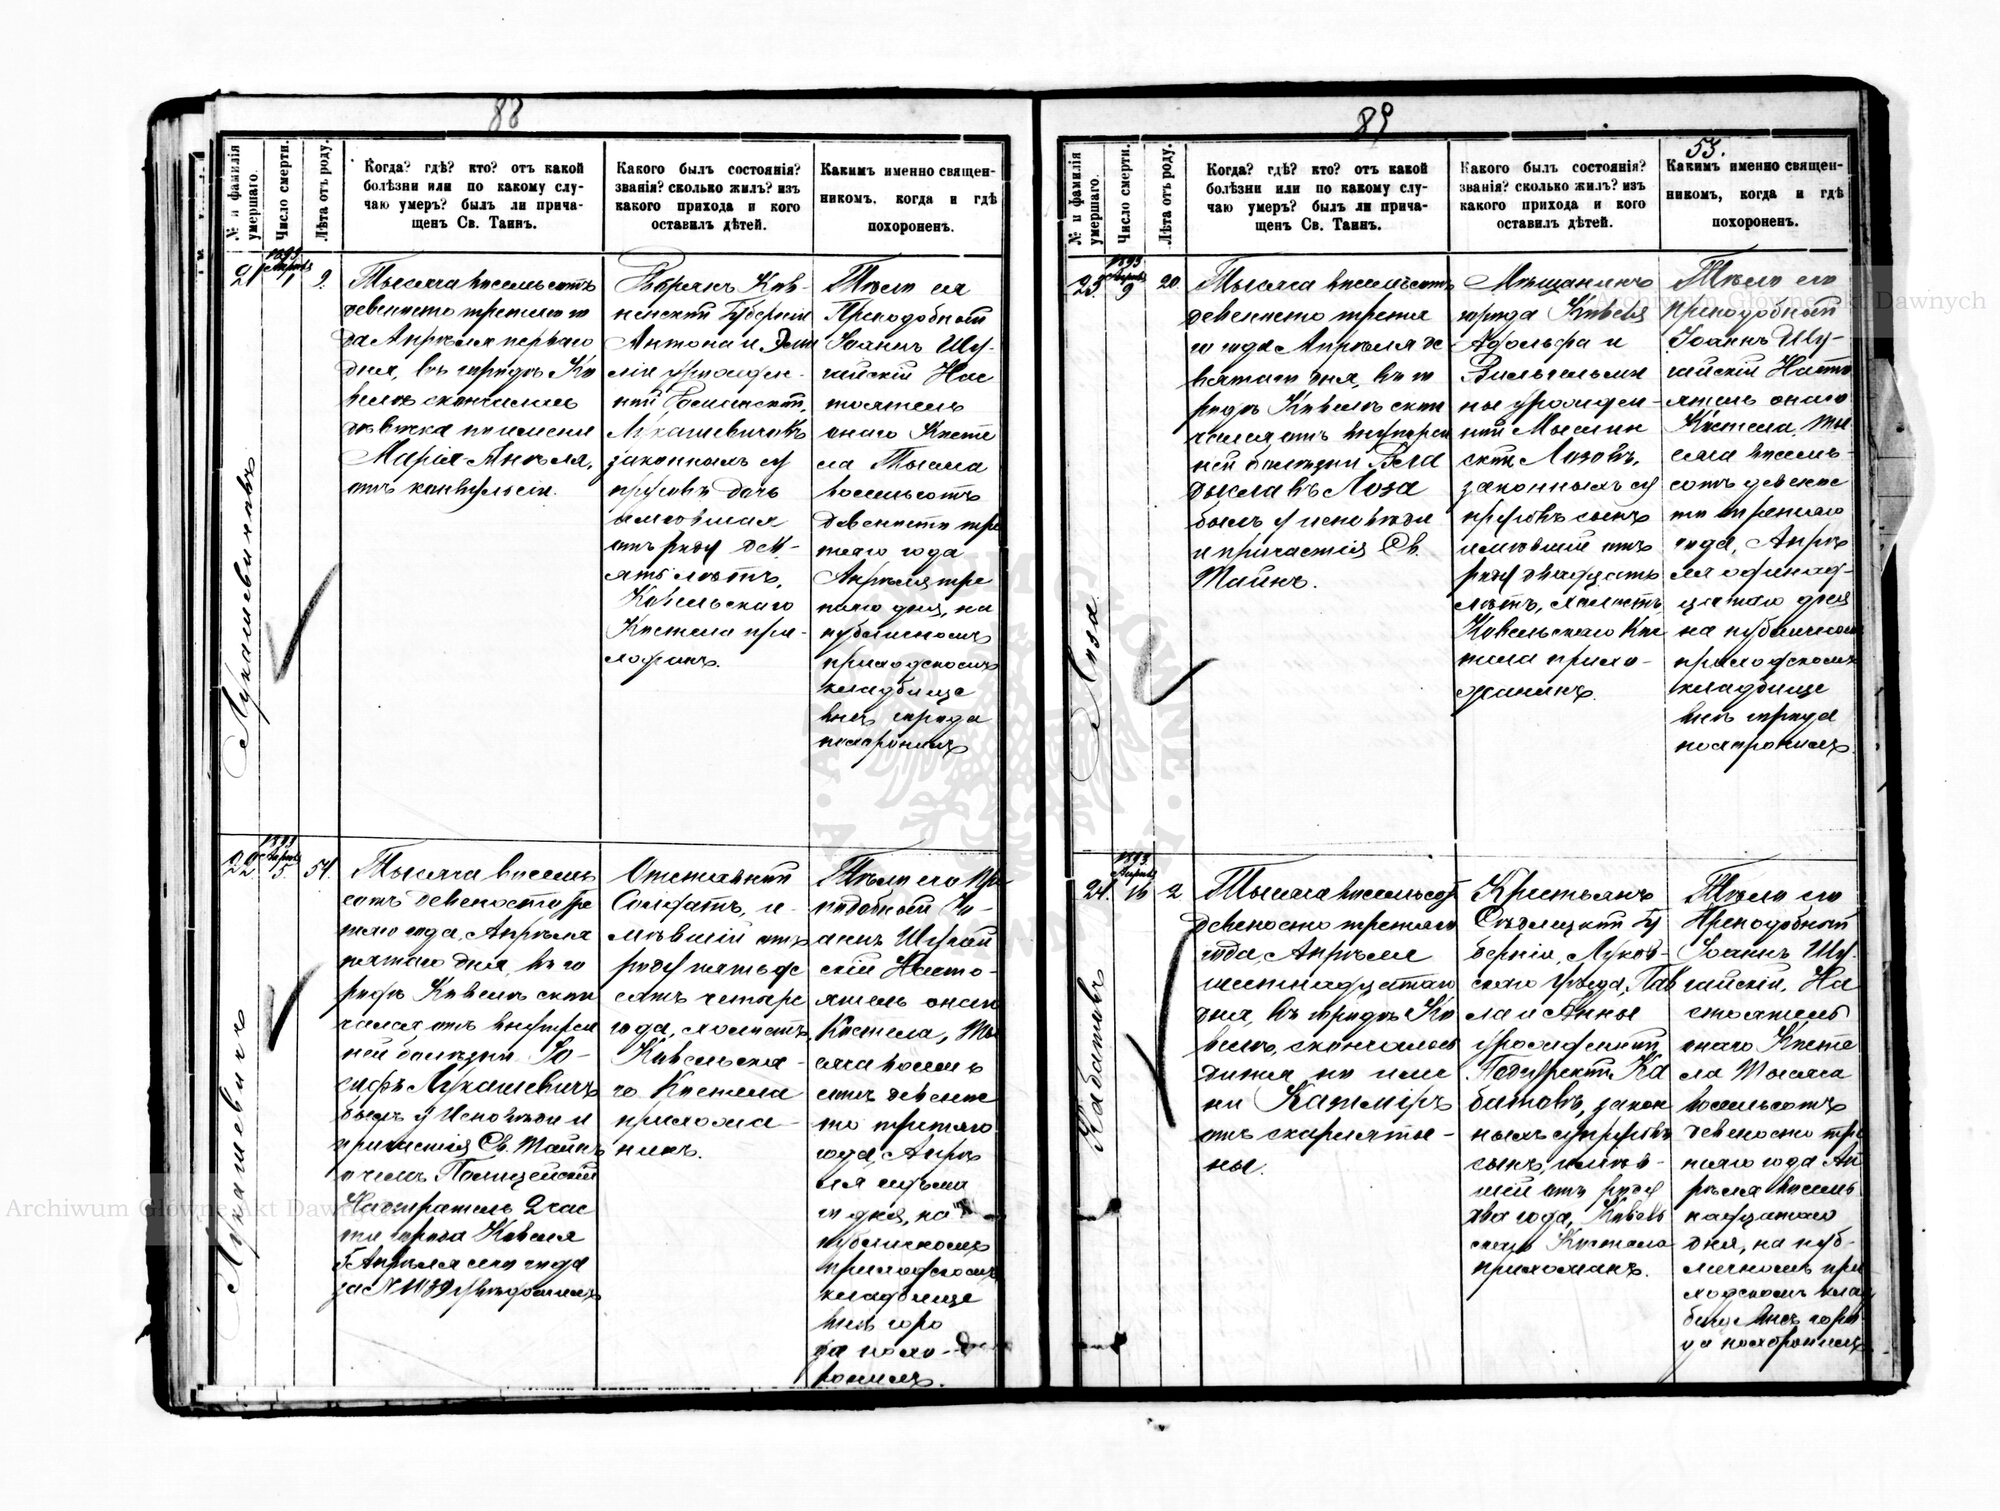 88
№ и фамилія умершаго.
Число смерти.
Лѣта отъ роду.
Когда? гдѣ? кто? отъ какой
болѣзни или по какому слу-
чаю умеръ? былъ ли прича-
щенъ Св. Таинъ.
Какого былъ состоянія?
званія? сколько жилъ? изъ
какого прихода и кого
оставилъ дѣтей.
Какимъ именно священ-
никомъ, когда и гдѣ
похороненъ.
21
Лукашевичевъ
1893
Апрѣль
1
9.
Тысяча восемьсотъ
девяносто третьяго го
да Апрѣля перваго
дня, въ городѣ Ко
велѣ скончалась
дѣвочка по имени
Марія-Анѣля,
отъ конвульсіи.
Дворянъ Ков-
ненской Губерніи
Антона и Эми
ліи урожден-
ной
Лукашевичевъ
законныхъ су
пруговъ дочь
имѣвшая
отъ роду дев-
ять лѣтъ,
Ковельскаго
Костела при-
хожанъ.
Тѣло ея
Преподобный
Іоаннъ Шу-
гайскій Нас
тоятель
онаго Косте
ла Тысяча
восемьсотъ
девяносто тре
тьяго года
Апрѣля тре
тьяго дня, на
публичномъ
приходскомъ
кладбище
внѣ города
похоронилъ
22
Лукашевичъ
1893
Апрѣль
5.
54.
Тысяча восемь
сотъ девяносто тре
тьяго года, Апрѣля
пятаго дня, въ го
родѣ Ковелѣ скон
чался отъ внутрен
ней болѣзни Іо-
сифъ Лукашевичъ
былъ у Исповѣди и
причастія Св. Тайнъ
о чемъ Полицейскій
Надзиратель 2 час
ти города Ковеля
5 Апрѣля сего года
за N 1139 увѣдомилъ
Отставный
Солдатъ, и-
мѣвшій отъ
роду пятьде
сятъ четыре
года, холостъ,
Ковельска-
го Костела
прихожа-
нинъ.
Тѣло его Пре
подобный Іо-
аннъ Шугай
скій Насто-
ятель онаго
Костела, Ты
сяча восемь
сотъ девянос
то третьяго
года, Апрѣ
ля седьма
го дня, на
публичномъ
приходскомъ
кладбище
внѣ горо
да похо-
ронилъ.
89
53.
№ и фамилія умершаго.
Число смерти.
Лѣта отъ роду.
Когда? гдѣ? кто? отъ какой
болѣзни или по какому слу-
чаю умеръ? былъ ли прича-
щенъ Св. Таинъ.
Какого былъ состоянія?
званія? сколько жилъ? изъ
какого прихода и кого
оставилъ дѣтей.
Какимъ именно священ-
никомъ, когда и гдѣ
похороненъ.
23.
Лоза.
1893
Апрѣль
9
20.
Тысяча восемьсотъ
девяносто третья
го года Апрѣля де
вятаго дня, въ го
родѣ Ковелѣ скон
чался, отъ внутрен
ней болѣзни Вла
диславъ Лоза
былъ у исповѣди
и причастія Св.
Тайнъ.
Мѣщанинъ
города Ковеля
Адольфа и
Вильгельми
ны урожден-
ной
Лозовъ,
законныхъ су
пруговъ сынъ
имѣвшій отъ
роду двадцать
лѣтъ, холостъ,
Ковельскаго Кос
тела прихо-
жанинъ.
Тѣло его
преподобный
Іоаннъ Шу-
гайскій Насто
ятель онаго
Костела, Ты
сяча восемь-
сотъ девянос
то третьяго
года, Апрѣ
ля одинад-
цатаго дня
на публичномъ
приходскомъ
кладбище
внѣ города
похоронилъ.
24.
Кабатовъ
1893.
Апрѣль
16
2
Тысяча восемьсотъ
девяносто третьяго
года, Апрѣля
шестнадцатаго
дня, въ городѣ Ко
велѣ, скончалось
дитя, по име
ни Казиміръ
отъ скарляти-
ны.
Крестьянъ
Сѣдлецкой Гу
берніи, Луков-
скаго уѣзда, Пав
ла и Анны
урожденной
Ка
батовъ, закон
ныхъ супруговъ
сынъ, имѣв-
шій отъ роду
два года, Ковель
скаго Костела
прихожанъ.
Тѣло его
Преподобный
Іоаннъ Шу-
гайскій, На
стоятель
онаго Косте
ла Тысяча
восемьсотъ
девяносто тре
тьяго года Ап
рѣля восемь
надцатаго
дня, на пуб-
личномъ при
ходскомъ клад
бище внѣ горо
да похоронилъ
Archiwum Główne Akt Dawnych
Archiwum Główne Akt Dawnych